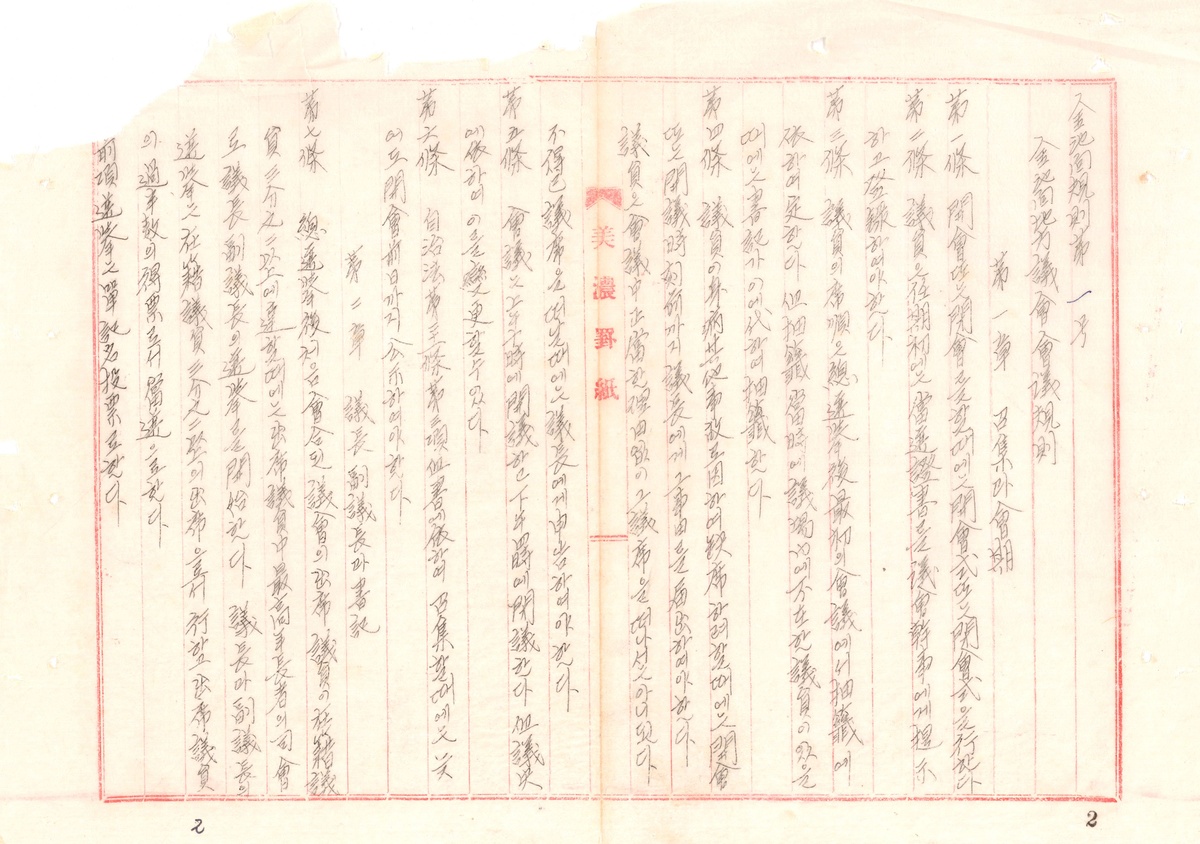 金池面規則第一号
金池面地方議會會議規則
第一章 召集과 會期
第一條 開會또는閉會를할때에는開會式또는閉會式을行한다
第二條 議員은任期初에는當選證書를議會幹事에게提示
하고登錄하여야한다
第三條 議員의席順은總選挙後最初의會議에서抽籤에
依하여定한다 但抽籤當時에議場內에不在한議員이있을
때에는書記가이에代하여抽籤한다
第四條 議員이身病其他事故로因하여缺席하려할때에는開會
또는開議時刻前까지議長에게그事由를届出하여야한다
議員은會議中正當한理由없이그議席을떠나서는아니된다
不得已議席을떠날때에는議長에게申告하여야한다
第五條 會議는上午十時에開議하고下午四時에閉議한다 但議決
에依하여이를變更할수있다
第六條 自治法第三條第二項但書에依하여召集할때에는
여도開會前日까지公示하여야한다
第二章 議長副議長과書記
第七條 總選挙後처음會合된議會의出席議員이在籍議
員三分之二以上에達할때에는出席議員中最高年長者의司會
로議長副議長의選挙를開始한다 議長과副議長의
選挙는在籍議員三分之二以上의出席으로써行하고出席議員
의過半數의得票로서當選으로한다
前項選挙는單記名投票로한다
美濃罫紙
2
2